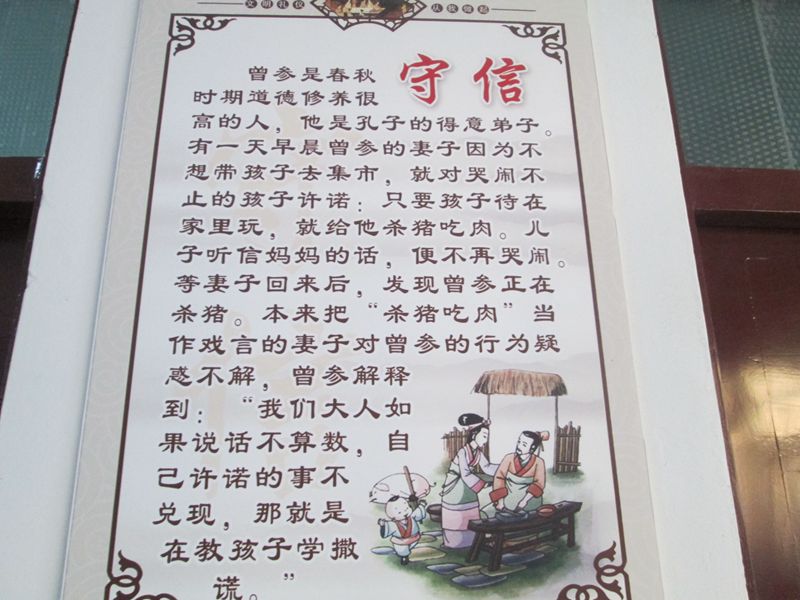 文明礼仪
守信
曾参是春秋
时期道德修养很
高的人，他是孔子的得意弟子。
有一天早晨曾参的妻子因为不
想带孩子去集市，就对哭闹不
止的孩子许诺：只要孩子待在
家里玩，就给他杀猪吃肉。儿
子听信妈妈的话，便不再哭闹。
等妻子回来后，发现曾参正在
杀猪。本来把“杀猪吃肉”当
作戏言的妻子对曾参的行为疑
惑不解，曾参解释
到：“我们大人如
果说话不算数，自
己许诺的事不
兑现，那就是
在教孩子学撒
谎。”